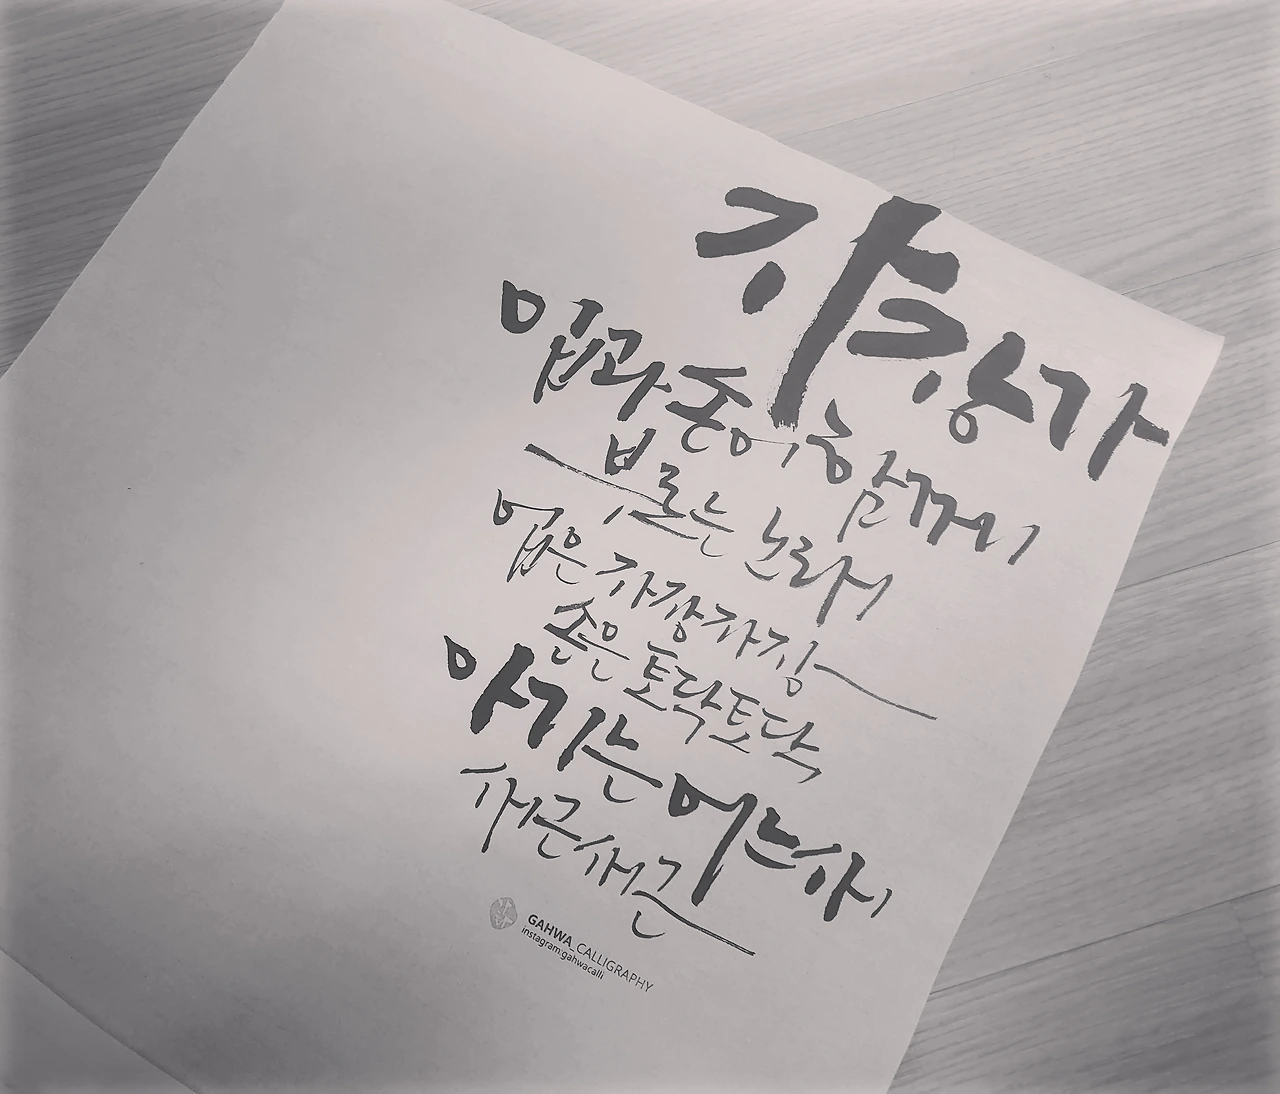 자장가
입과 손이 함께
부르는 노래
입은 자장자장
손은 토닥토닥
아기는 어느새
새근새근
GAHWA_CALLIGRAPHY
instagram:gahwacalli